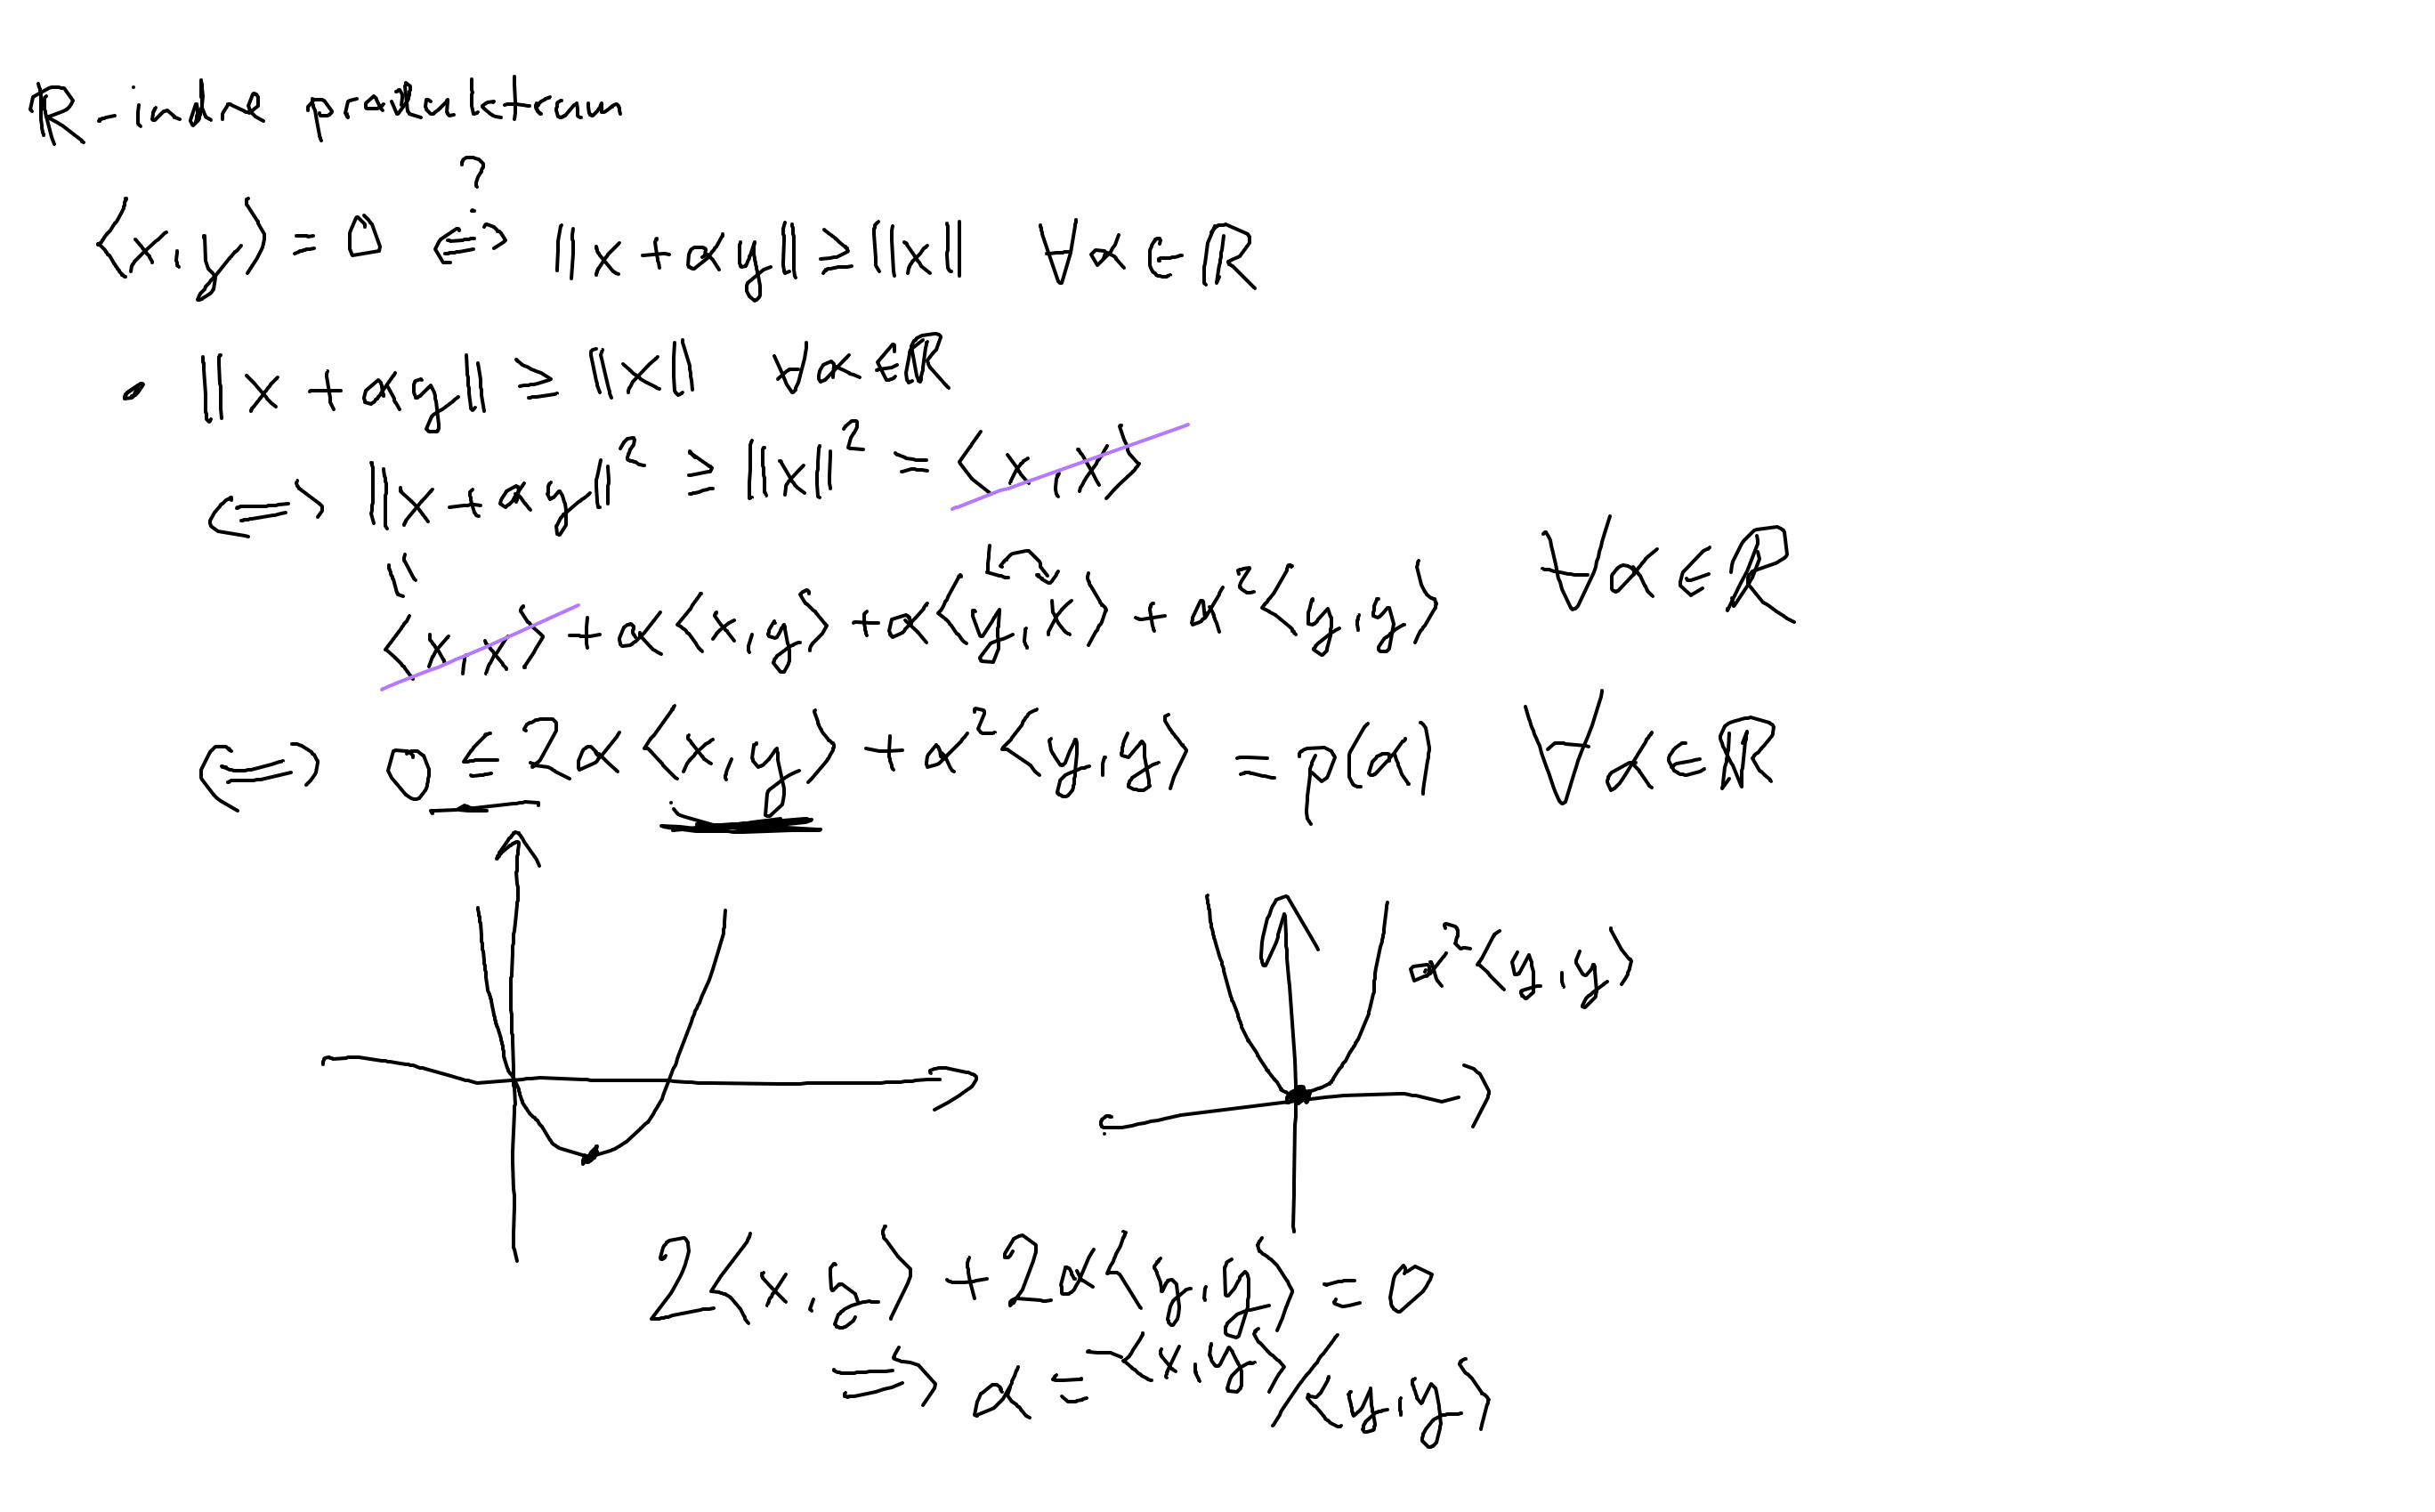 R-indre produktrum
?
⟨x,y⟩ = 0 ⇔ ||x + αy|| ≥ ||x|| ∀α ∈ R
• ||x + αy|| ≥ ||x|| ∀α ∈ R
⇔ ||x + αy||² ≥ ||x||² = ⟨x,x⟩
⟨x,x⟩ + α⟨x,y⟩ + α⟨y,x⟩ + α²⟨y,y⟩ ∀α ∈ R
⇔ 0 ≤ 2α⟨x,y⟩ + α²⟨y,y⟩ = p(α) ∀α ∈ R
α²⟨y,y⟩
2⟨x,y⟩ + 2α⟨y,y⟩ = 0
⇒ α = -⟨x,y⟩/⟨y,y⟩